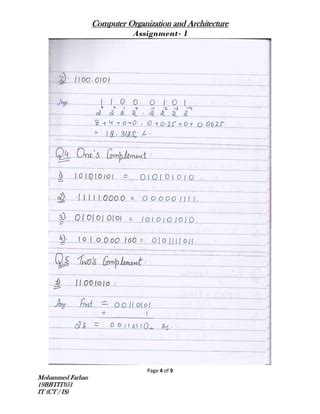 Computer Organization and Architecture
Assignment- 1
3). 1100.0101
Ans.
1 1 0 0. 0 1 0 1
8+4+0+0. 0+0.25+0+0.0625
Q4 One's Complement
1) 101010101 = 010101010.
2) 111110000 = 000001111.
3) 0101010101 = 1010101010.
4) 1010000100 = 0101111011.
Q5 Two's Complement
1) 11001010.
Ans First = 00110101
+ 1
2's = 00110110
Page 4 of 9
Mohammed Farhan
IT (CT / IS)